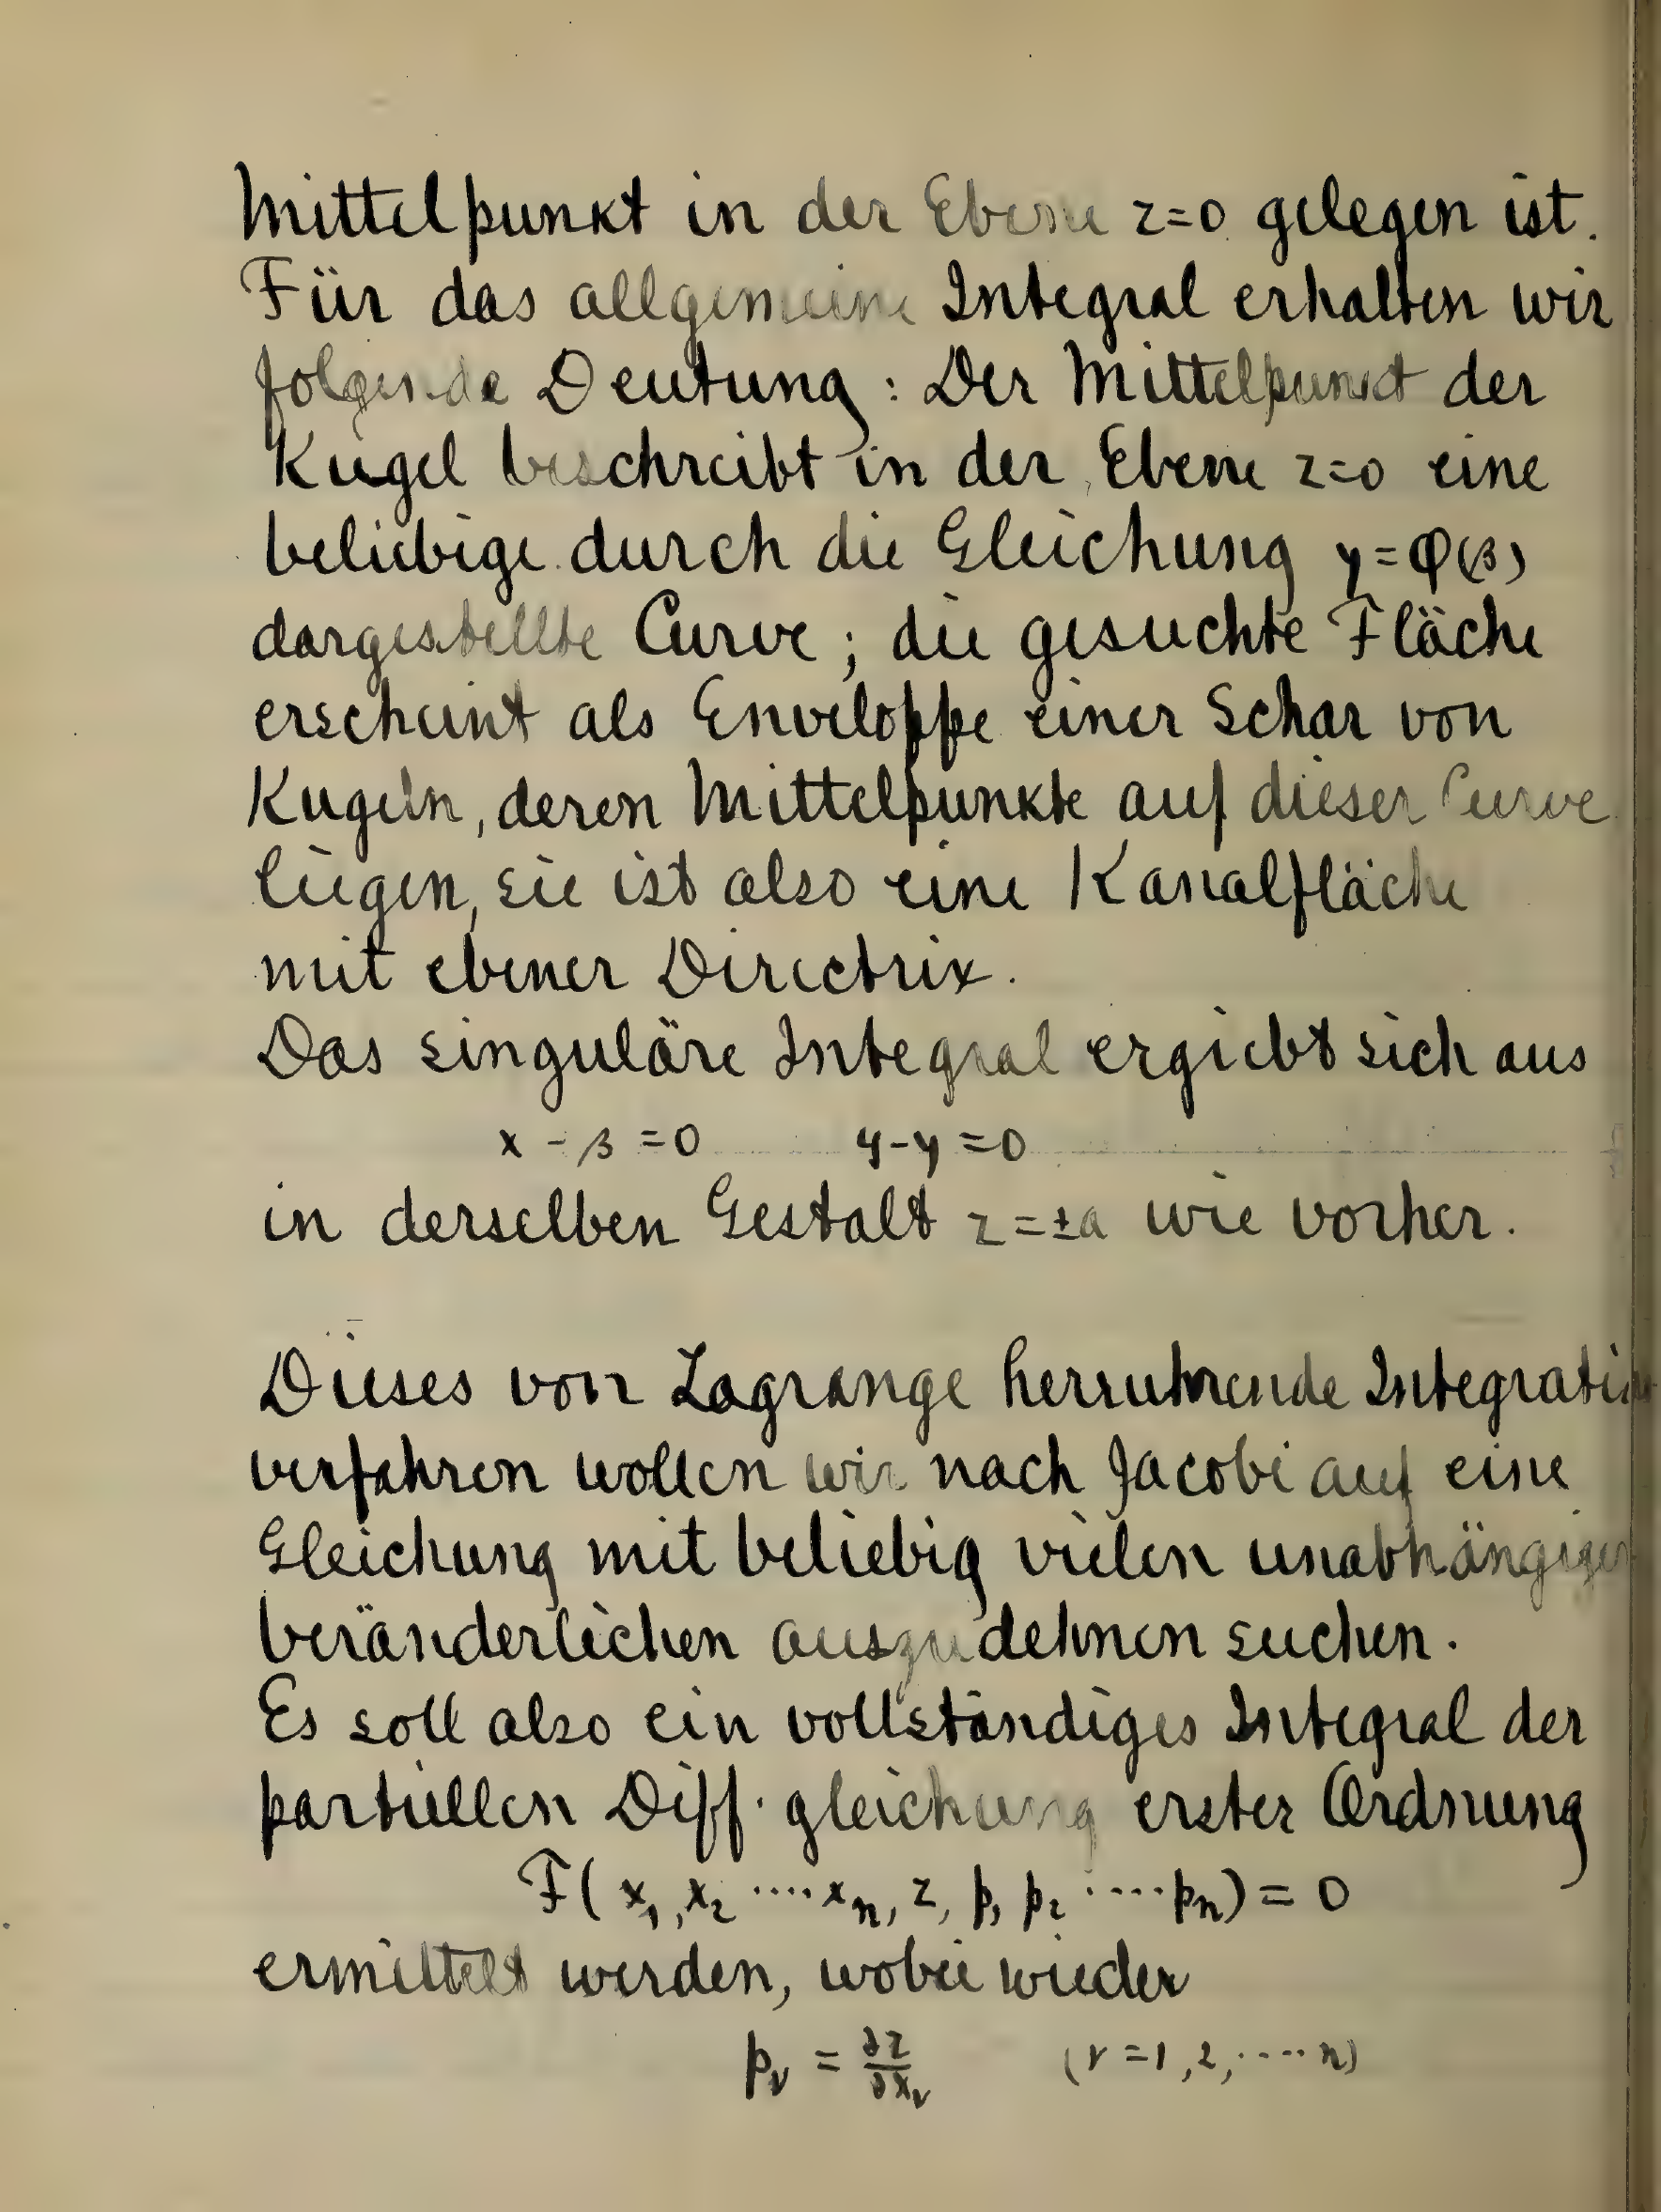 Mittelpunkt in der Ebene z=0 gelegen ist.
Für das allgemeine Integral erhalten wir
folgende Deutung: Der Mittelpunkt der
Kugel beschreibt in der Ebene z=0 eine
beliebige durch die Gleichung γ=φ(β)
dargestellte Curve; die gesuchte Fläche
erscheint als Enveloppe einer Schar von
Kugeln, deren Mittelpunkte auf dieser Curve
liegen, sie ist also eine Kanalfläche
mit ebener Directrix.
Das singuläre Integral ergiebt sich aus
x - β = 0 y - γ = 0
in derselben Gestalt z = ±a wie vorher.
Dieses von Lagrange herruhrende Integration
verfahren wollen wir nach Jacobi auf eine
Gleichung mit beliebig vielen unabhängigen
Veränderlichen auszudehnen suchen.
Es soll also ein vollständiges Integral der
partiellen Diff. gleichung erster Ordnung
F(x₁, x₂ ····xₙ, z, p₁ p₂ ·····pₙ) = 0
ermittelt werden, wobei wieder
p_ν = ∂z/∂x_ν (ν = 1, 2, ···· n)